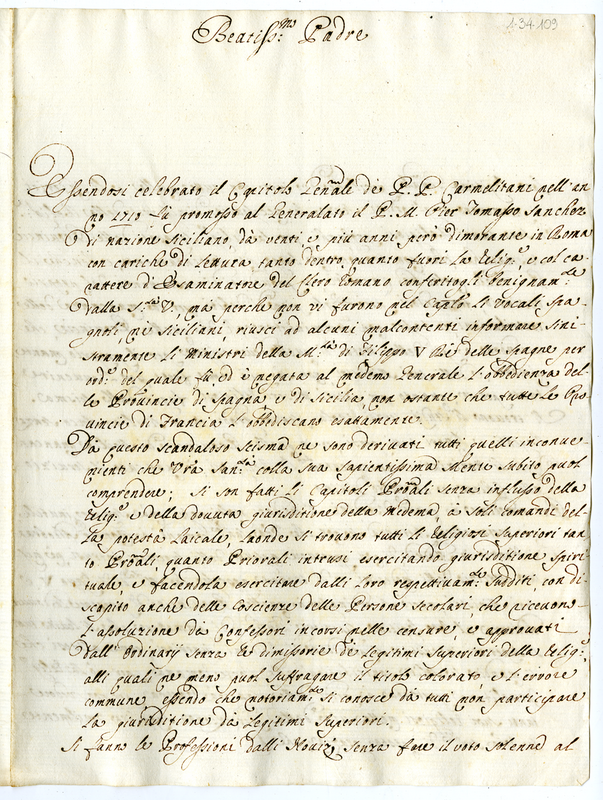 1-34-109
Beatiss.mo Padre
Essendosi celebrato il Capitolo Gen̄ale de P. P. Carmelitani nell'an
no 1710 fù promosso al Generalato il P. M. Pier Tomaso Sanchez
di nazione Siciliano, dà venti e più anni però dimorante in Roma
con cariche di Lettura tanto dentro, quanto fuori la Relig.e e col ca
rattere d'Esaminatore del Clero Romano conferitogli benignam.te
dalla S.tà V., ma perche non vi furono nel Caplo li Vocali spa
gnoli, ne siciliani riuscì ad alcuni malcontenti informare sini
stramente li Ministri della M.tà di Filippo V Rè delle Spagne per
ord.e del quale fù ed è negata al medemo Generale l'obbedienza del
le Provincie di Spagna, e di Sicilia, non ostante che tutte le Pro
vincie di Francia l'obbediscano esattamente.
Dà questo scandaloso scisma ne sono derivati tutti quelli inconve
nienti che V̄ra San.tà colla sua Sapientissima Mente subito puol
comprendere; Si son fatti li Capitoli Pro͞ali senza influsso della
Relig.e e della dovuta giurisditione della medema, à soli comandi del
la potestà Laicale, laonde si trovono tutti li Religiosi Superiori tan
to Pro͞ali, quanto Priorali intrusi esercitando giurisditione spiri
tuale, e facendola esercitare dalli loro respettivam.te sudditi, con di
scapito anche delle Coscienze delle Persone secolari, che ricevono
l'assoluzione dà Confessori incorsi nelle censure, e approvati
dall'Ordinarij senza le dimissorie de legitimi Superiori della Relig.e
alli quali ne meno puol suffragare il titolo colorato, e l'errore
commune, essendo che notoriam.te si conosce dà tutti non participare
la giurisditione dà legitimi Superiori.
Si fanno le Professioni dalli Novizj senza fare il voto solenne al